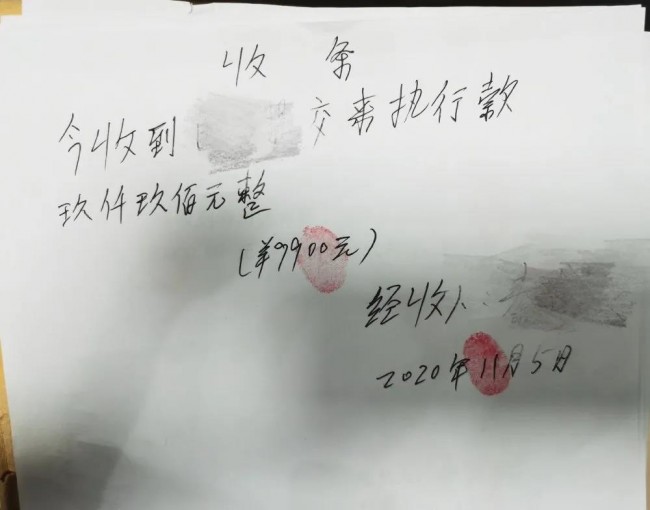 收条
今收到 交来执行款
玖仟玖佰元整
(¥9900元)
经收人:
2020年11月5日